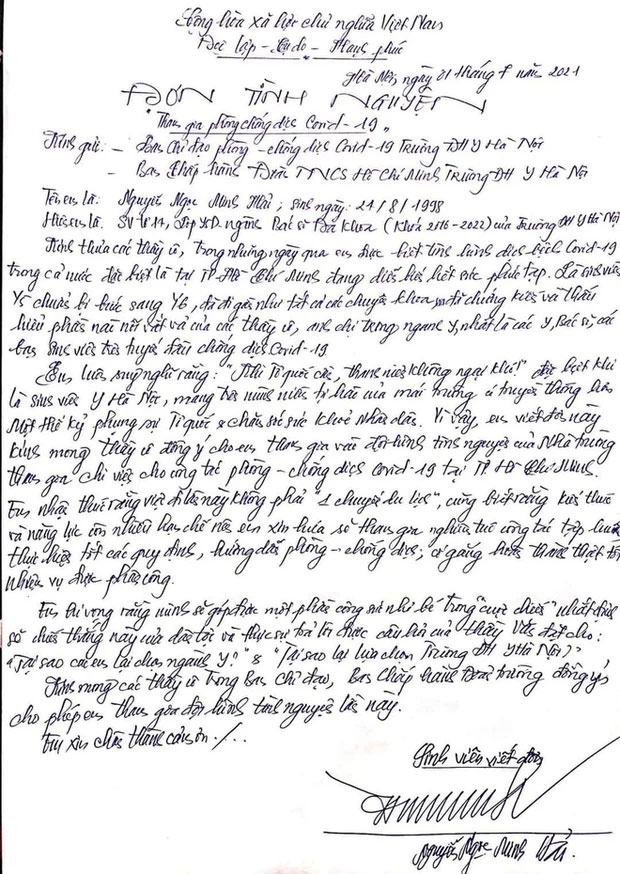 Cộng hòa xã hội chủ nghĩa Việt Nam
Độc lập - Tự do - Hạnh phúc
Hà Nội, ngày 01 tháng 7 năm 2021
ĐƠN TÌNH NGUYỆN
Tham gia phòng chống dịch Covid-19
Kính gửi: - Ban Chỉ đạo phòng - chống dịch Covid-19 Trường ĐH Y Hà Nội
- Ban Chấp hành Đoàn TNCS Hồ Chí Minh Trường ĐH Y Hà Nội
Tên em là: Nguyễn Ngọc Minh Hải; sinh ngày: 21/8/1998
Hiện em là: SV tổ 14, lớp Y5D ngành Bác sĩ Đa khoa (Khóa 2016-2022) của Trường ĐH Y Hà Nội
Kính thưa các thầy cô, trong những ngày qua em được biết tình hình dịch bệnh Covid-19
trong cả nước đặc biệt là tại TP Hồ Chí Minh đang diễn biến hết sức phức tạp. Là sinh viên
Y5 chuẩn bị bước sang Y6, đã đi gần như tất cả các chuyên khoa, em đã chứng kiến và thấu
hiểu phần nào nỗi vất vả của các thầy cô, anh chị trong ngành y, nhất là các Y, Bác sĩ, các
bạn sinh viên trên tuyến đầu chống dịch Covid-19
Em luôn suy nghĩ rằng: "Khi Tổ quốc cần, thanh niên không ngại khó!" đặc biệt khi
là sinh viên Y Hà Nội, mang trên mình niềm tự hào của mái trường có truyền thống hơn
Một thế kỷ phụng sự Tổ quốc & chăm sóc sức khoẻ Nhân dân. Vì vậy, em viết đơn này
kính mong thầy cô đồng ý cho em tham gia vào đội hình tình nguyện của Nhà trường
tham gia chi viện cho công tác phòng - chống dịch Covid-19 tại TP Hồ Chí Minh.
Em nhận thức rằng việc đi lần này không phải "1 chuyến du lịch", cũng biết rằng kiến thức
và năng lực còn nhiều hạn chế nên em xin hứa sẽ tham gia nghiêm túc công tác tập huấn
thực hiện tốt các quy định, hướng dẫn phòng - chống dịch; cố gắng hoàn thành thật tốt
nhiệm vụ được phân công.
Em hi vọng rằng mình sẽ góp được một phần công sức nhỏ bé trong "cuộc chiến" nhất định
sẽ chiến thắng này của dân tộc và thực sự trả lời được câu hỏi của thầy đặt cho:
"Tại sao các em lại chọn ngành Y?" & "Tại sao lại lựa chọn Trường ĐH Y Hà Nội?"
Kính mong các thầy cô trong Ban Chỉ đạo, Ban Chấp hành Đoàn trường đồng ý
cho phép em tham gia đội hình tình nguyện lần này.
Em xin chân thành cảm ơn./.
Sinh viên viết đơn
Nguyễn Ngọc Minh Hải